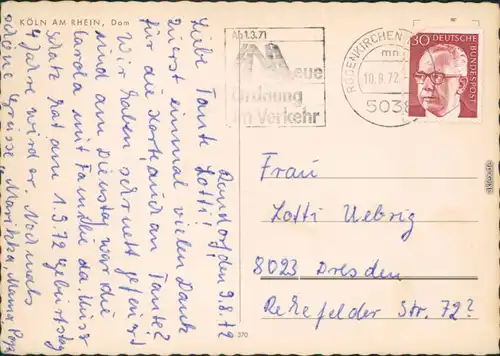 KÖLN AM RHEIN, Dom
Rondorf, den 9.8.72
Liebe Tante Lotti!
Zuerst einmal vielen Dank
für die Karte, auch an Tante?
Wir haben sehr nett gefeiert
und am Dienstag war die
Carola mit Familie da. Unser
Schatz hat am 1.9.72 Geburtstag
4 Jahre wird er. Nochmals
schöne Grüsse Mama Papa
Ab 1.3.71
Neue
Ordnung
im Verkehr
RODENKIRCHEN
mn
10.8.72
5038
30 DEUTSCHE
BUNDESPOST
Frau
Lotti Uebrig
8023 Dresden
Rehefelder Str. 72?
370